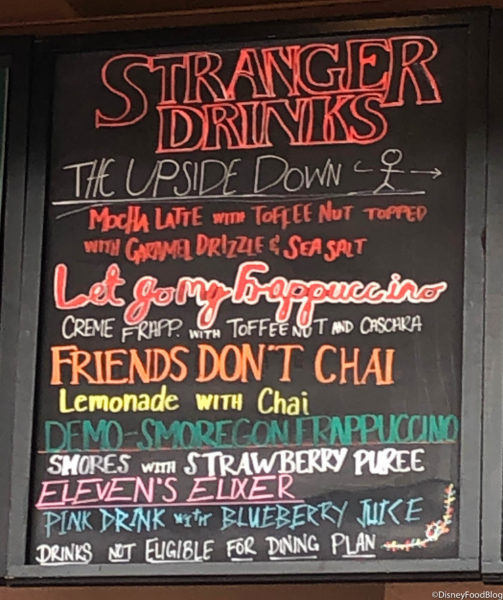 STRANGER
DRINKS
THE UPSIDE DOWN
MOCHA LATTE WITH TOFFEE NUT TOPPED
WITH CARAMEL DRIZZLE & SEA SALT
Let go my Frappuccino
CREME FRAPP. WITH TOFFEE NUT AND CASCARA
FRIENDS DON'T CHAI
Lemonade WITH Chai
DEMO-SMOREGON FRAPPUCCINO
SMORES WITH STRAWBERRY PUREE
ELEVEN'S ELIXER
PINK DRINK WITH BLUEBERRY JUICE
DRINKS NOT ELIGIBLE FOR DINING PLAN
©DisneyFoodBlog